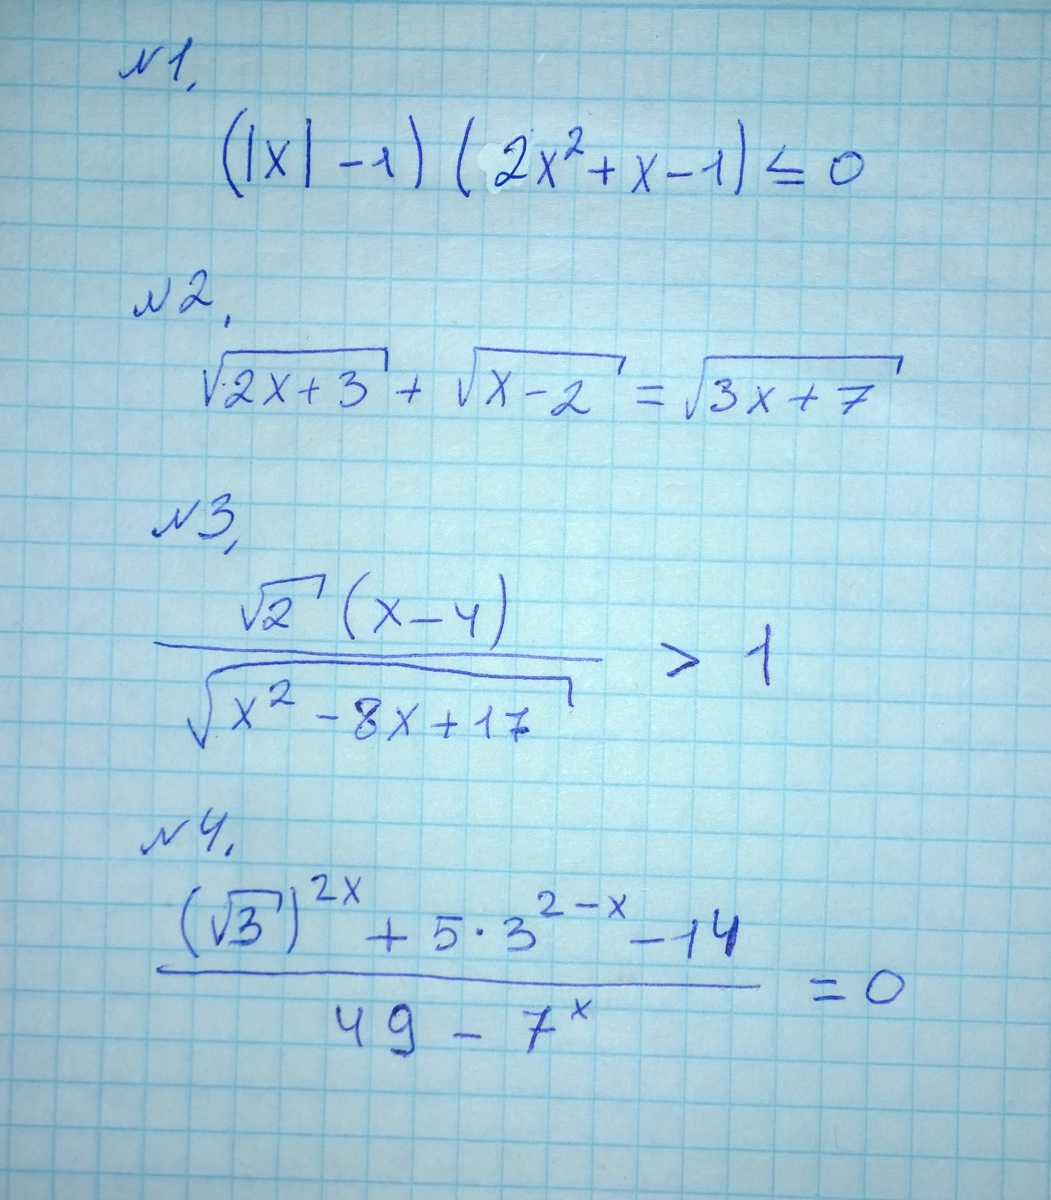 №1.
(|x| - 1) (2x² + x - 1) ≤ 0
№2.
√(2x + 3) + √(x - 2) = √(3x + 7)
№3.
(√2 (x - 4)) / √(x² - 8x + 17) > 1
№4.
((√3)^(2x) + 5 · 3^(2-x) - 14) / (49 - 7^x) = 0